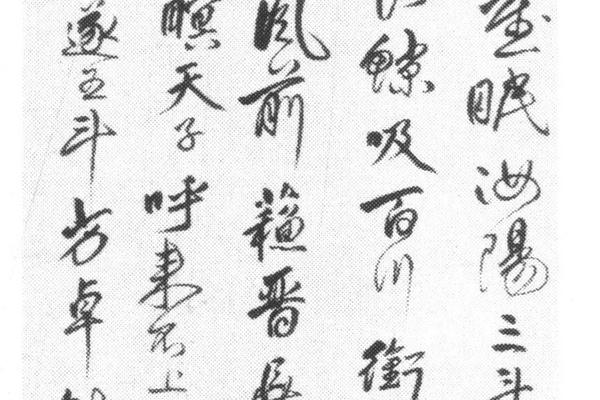 眠汝陽三斗
鯨吸百川銜
風前蘇晉長
瞑天子呼來不上
遂五斗方卓